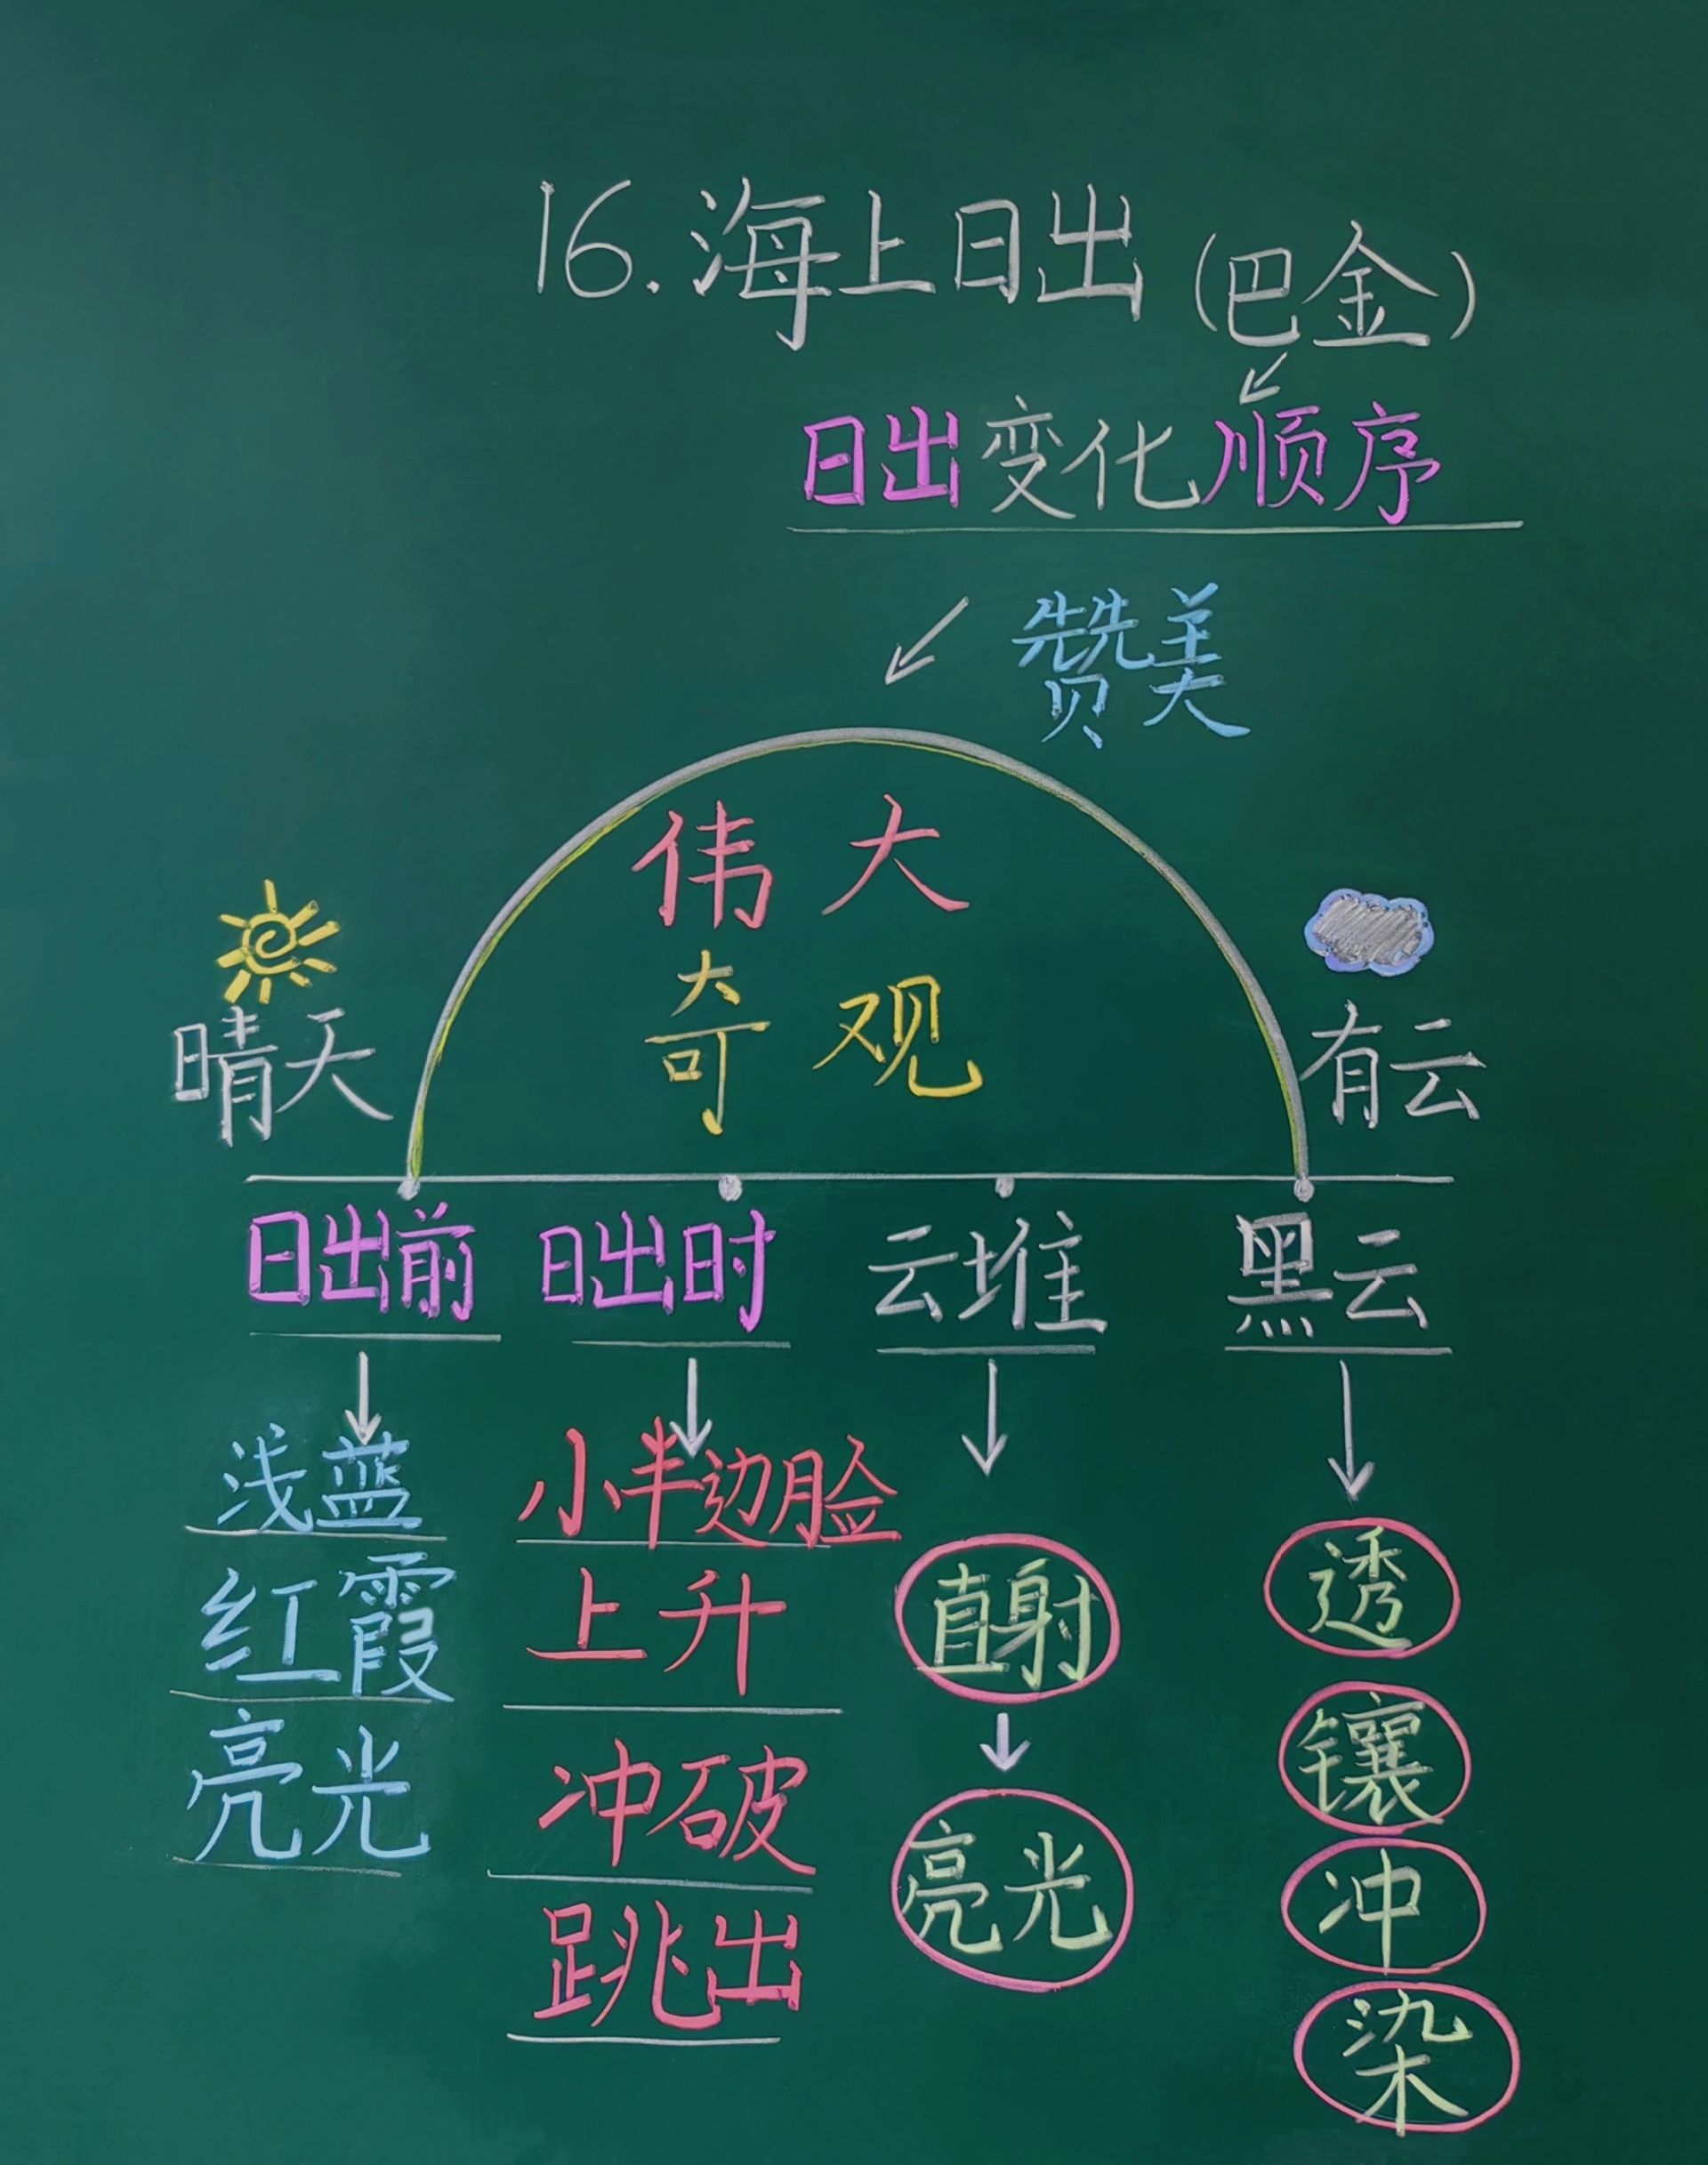 16.海上日出(巴金)
日出变化顺序
赞美
伟大
奇观
晴天
有云
日出前 日出时 云堆 黑云
浅蓝
红霞
亮光
小半边脸
上升
冲破
跳出
直射
亮光
透
镶
冲
染